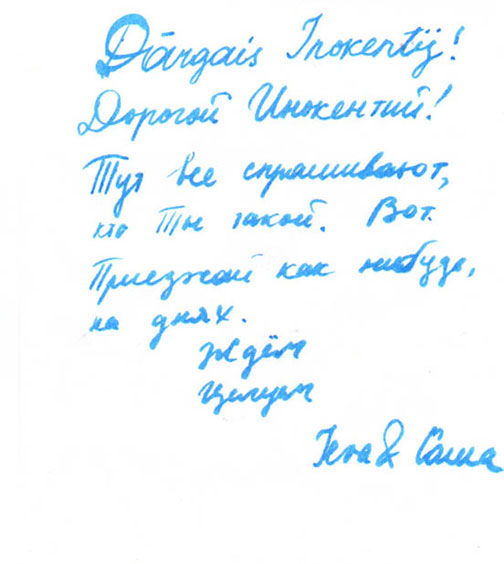 Dārgais Inokentij!
Дорогой Инокентий!
Тут все спрашивают,
кто Ты такой. Вот.
Приезжай как нибудь,
на днях.
Ждём
Целуем
& Саша